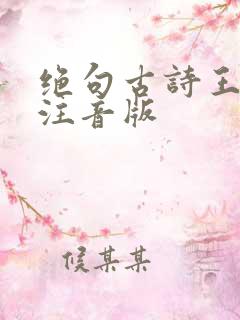 绝句古詩王
注音版
候某某